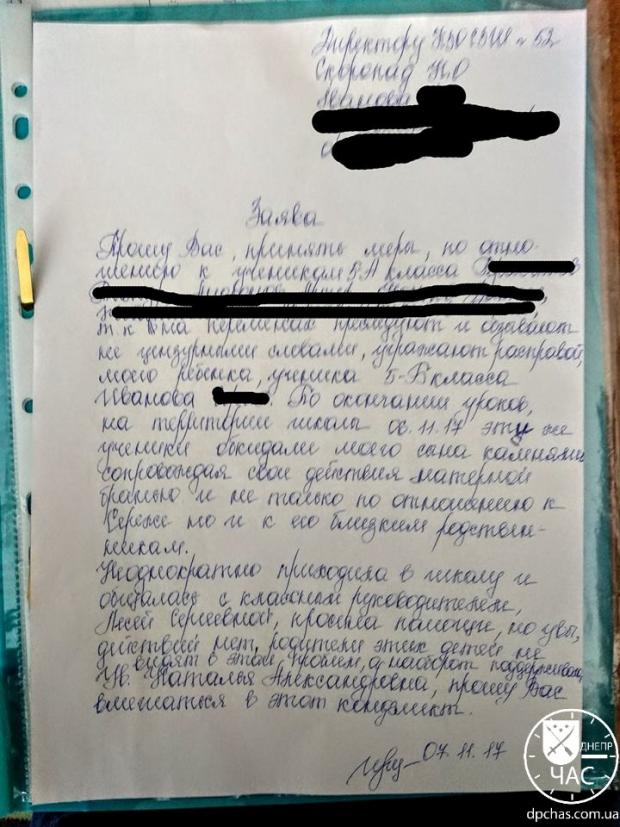 Директору НВО СЗШ № 52
Скоропад Н.О
Иванова
Заява
Прошу Вас, принять меры, по отно-
шению к ученикам 5-А класса
т.к на переменах преследуют и обзывают
не цензурными словами, угражают расправой,
моего ребёнка, ученика 5-В класса
Иванова По окончании уроков,
на территории школы 06.11.17 эти же
ученики обкидали моего сына камнями,
сопровождая свои действия матерной
бранью и не только по отношению к
Сереже но и к его близким родствен-
никам.
Неоднократно приходила в школу и
общалась с классным руководителем,
Лесей Сергеевной, просила помощи, но увы,
действий нет, родители этих детей не
видят в этом проблем, а наоборот поддерживают
Ув. Наталья Александровна, прошу Вас
вмешаться в этот конфликт.
07.11.17
ДНЕПР
ЧАС
dpchas.com.ua